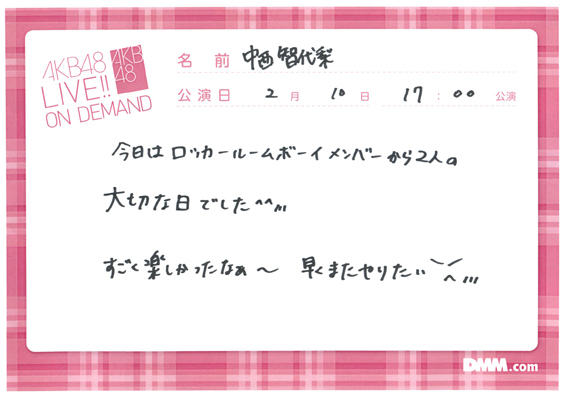 AKB48
LIVE!!
ON DEMAND
AKB
48
名前 中西智代梨
公演日 2月 10日 17:00 公演
今日はロッカールームボーイメンバーから2人の
大切な日でした^^,,,
すごく楽しかったなぁ〜 早くまたやりたい
DMM.com